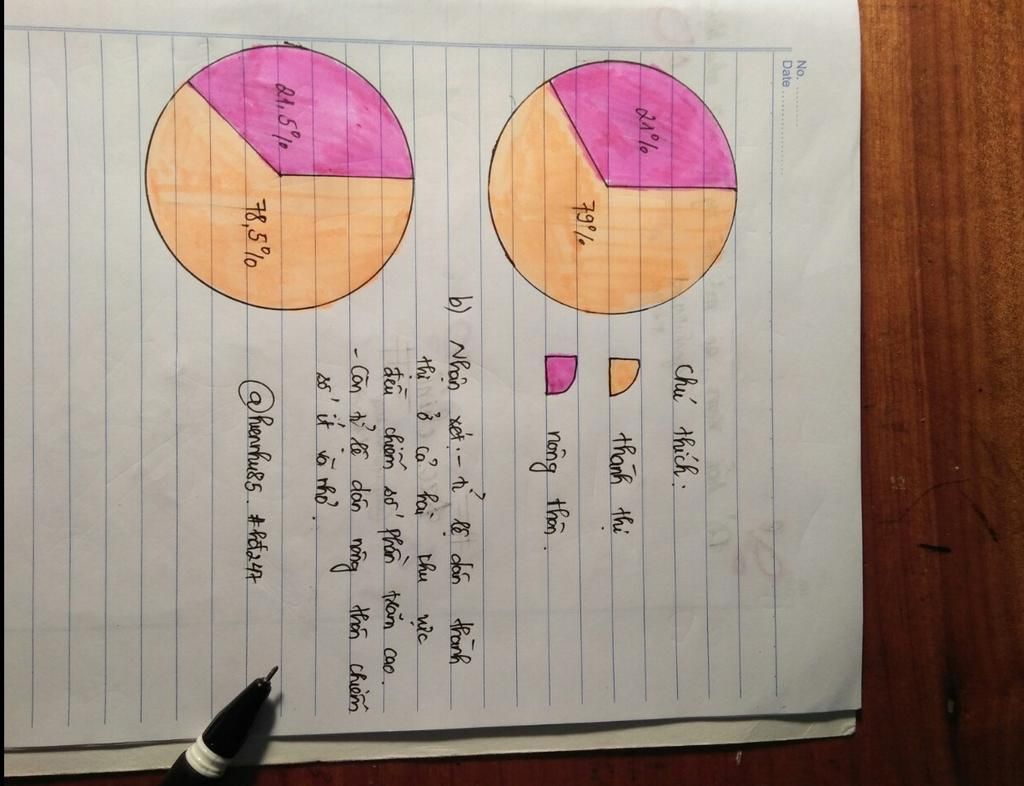 No.
Date
21%
79%
Chú thích:
thành thị
nông thôn.
21,5%
78,5%
b) Nhận xét: - tỉ lệ dân thành
thị ở cả hai khu vực
đều chiếm số phần trăm cao.
- Còn tỉ lệ dân nông thôn chiếm
số ít và nhỏ.
@hienhu85. #hđ247